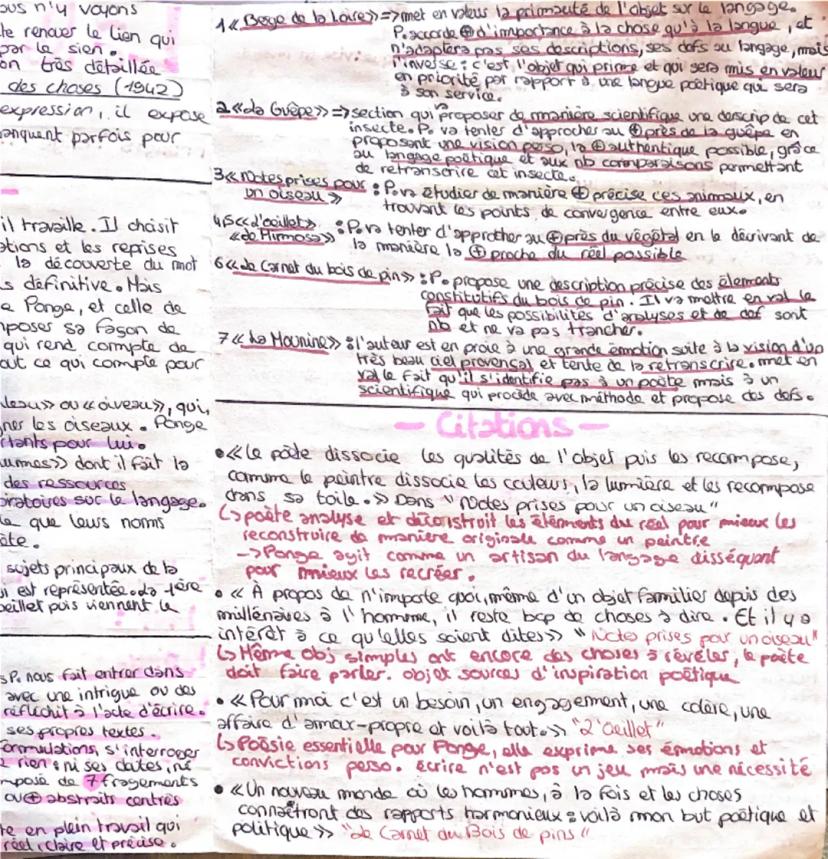 ous n'y voyons
te renouer le lien qui
par le sien.
on très détaillée
des choses (1942)
expression, il expose
anquent parfois pour
il travaille. Il choisit
ations et les reprises
la découverte du mot
s définitive. Mais
e Ponge, et celle de
mposer sa façon de
qui rend compte de
out ce qui compte pour
leau>> ou <<oiveau>>, qui,
ner les oiseaux. Ponge
rtants pour lui.
urmes>> dont il fait la
des ressources
piratoires sur le langage.
le que leurs noms
ète.
sujets principaux de la
ui est représentée. La 1ère
oeillet puis viennent le
sP. nous fait entrer dans
avec une intrigue ou des
réfléchit à l'acte d'écrire.
ses propres textes.
ormulations, s'interroger
e rien : ni ses dates, ni
mposé de 7 fragements
ou ⊕ abstraits centrés
te en plein travail qui
réel, claire et précise.
1 << Berge de la Loire>> => met en valeur la primauté de l'objet sur le langage.
P. accorde ⊕ d'importance à la chose qu'à la langue, et
n'adaptera pas ses descriptions, ses defs au langage, mais
l'inverse : c'est l'objet qui prime et qui sera mis en valeur
en priorité par rapport à une langue poétique qui sera
à son service.
2 <<La Guêpe>> => section qui va proposer de manière scientifique une descrip de cet
insecte. P. va tenter d'approcher au ⊕ près de la guêpe en
proposant une vision perso, la ⊕ authentique possible, grâce
au langage poétique et aux nb comparaisons permettant
de retranscrire cet insecte.
3 <<Notes prises pour
un oiseau>> : P. va étudier de manière ⊕ précise ces animaux, en
trouvant les points de convergence entre eux.
4,5 <<L'oeillet>>
<<Le Mimosa>> : P. va tenter d'approcher au ⊕ près du végétal en le dérivant de
la manière la ⊕ proche du réel possible
6 <<Le Carnet du bois de pin>> : P. propose une description précise des élements
constitutifs du bois de pin. Il va mettre en val le
fait que les possibilités d'analyses et de def sont
nb et ne va pas trancher.
7 <<La Mounine>> : l'auteur est en proie à une grande émotion suite à la vision d'un
très beau ciel provençal et tente de la retranscrire. met en
val le fait qu'il s'identifie pas à un poète mais à un
scientifique qui procède avec méthode et propose des defs.
— Citations —
• <<Le poète dissocie les qualités de l'objet puis les recompose,
comme le peintre dissocie les couleurs, la lumière et les recompose
dans sa toile.>> Dans "Notes prises pour un oiseau"
↳ poète analyse et déconstruit les éléments du réel pour mieux les
reconstruire de manière originale comme un peintre
-> Ponge agit comme un artisan du langage disséquant
pour mieux les recréer.
• << À propos de n'importe quoi, même d'un objet familier depuis des
millénaires à l'homme, il reste bcp de choses à dire. Et il y a
intérêt à ce qu'elles soient dites>> "Notes prises pour un oiseau"
↳ Même obj simples ont encore des choses à révéler, le poète
doit faire parler. objet sources d'inspiration poétique
• <<Pour moi c'est un besoin, un engagement, une colère, une
affaire d'amour-propre et voilà tout.>> "L'Oeillet"
↳ Poésie essentielle pour Ponge, elle exprime ses émotions et
convictions perso. écrire n'est pas un jeu mais une nécessité
• <<Un nouveau monde où les hommes, à la fois et les choses
connaîtront des rapports harmonieux : voilà mon but poétique et
politique>> "Le Carnet du Bois de pins"